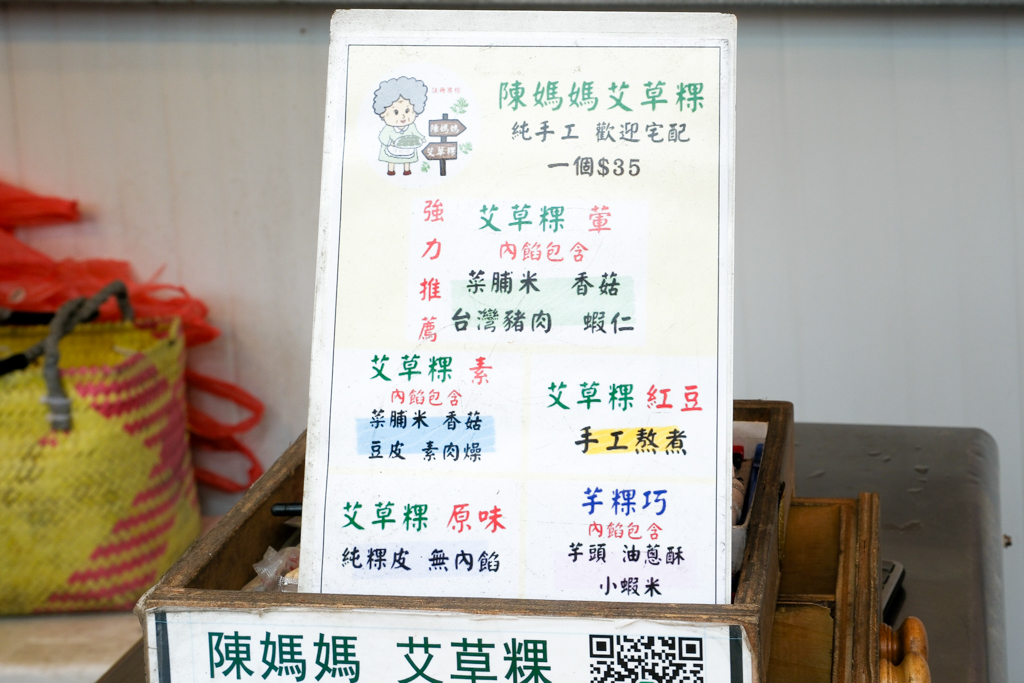 陳媽媽艾草粿
純手工 歡迎宅配
一個$35
陳媽媽
艾草粿
強力推薦
艾草粿 葷
內餡包含
菜脯米 香菇
台灣豬肉 蝦仁
艾草粿 素
內餡包含
菜脯米 香菇
豆皮 素肉燥
艾草粿 紅豆
手工熬煮
艾草粿 原味
純粿皮 無內餡
芋粿巧
內餡包含
芋頭 油蔥酥
小蝦米
陳媽媽 艾草粿